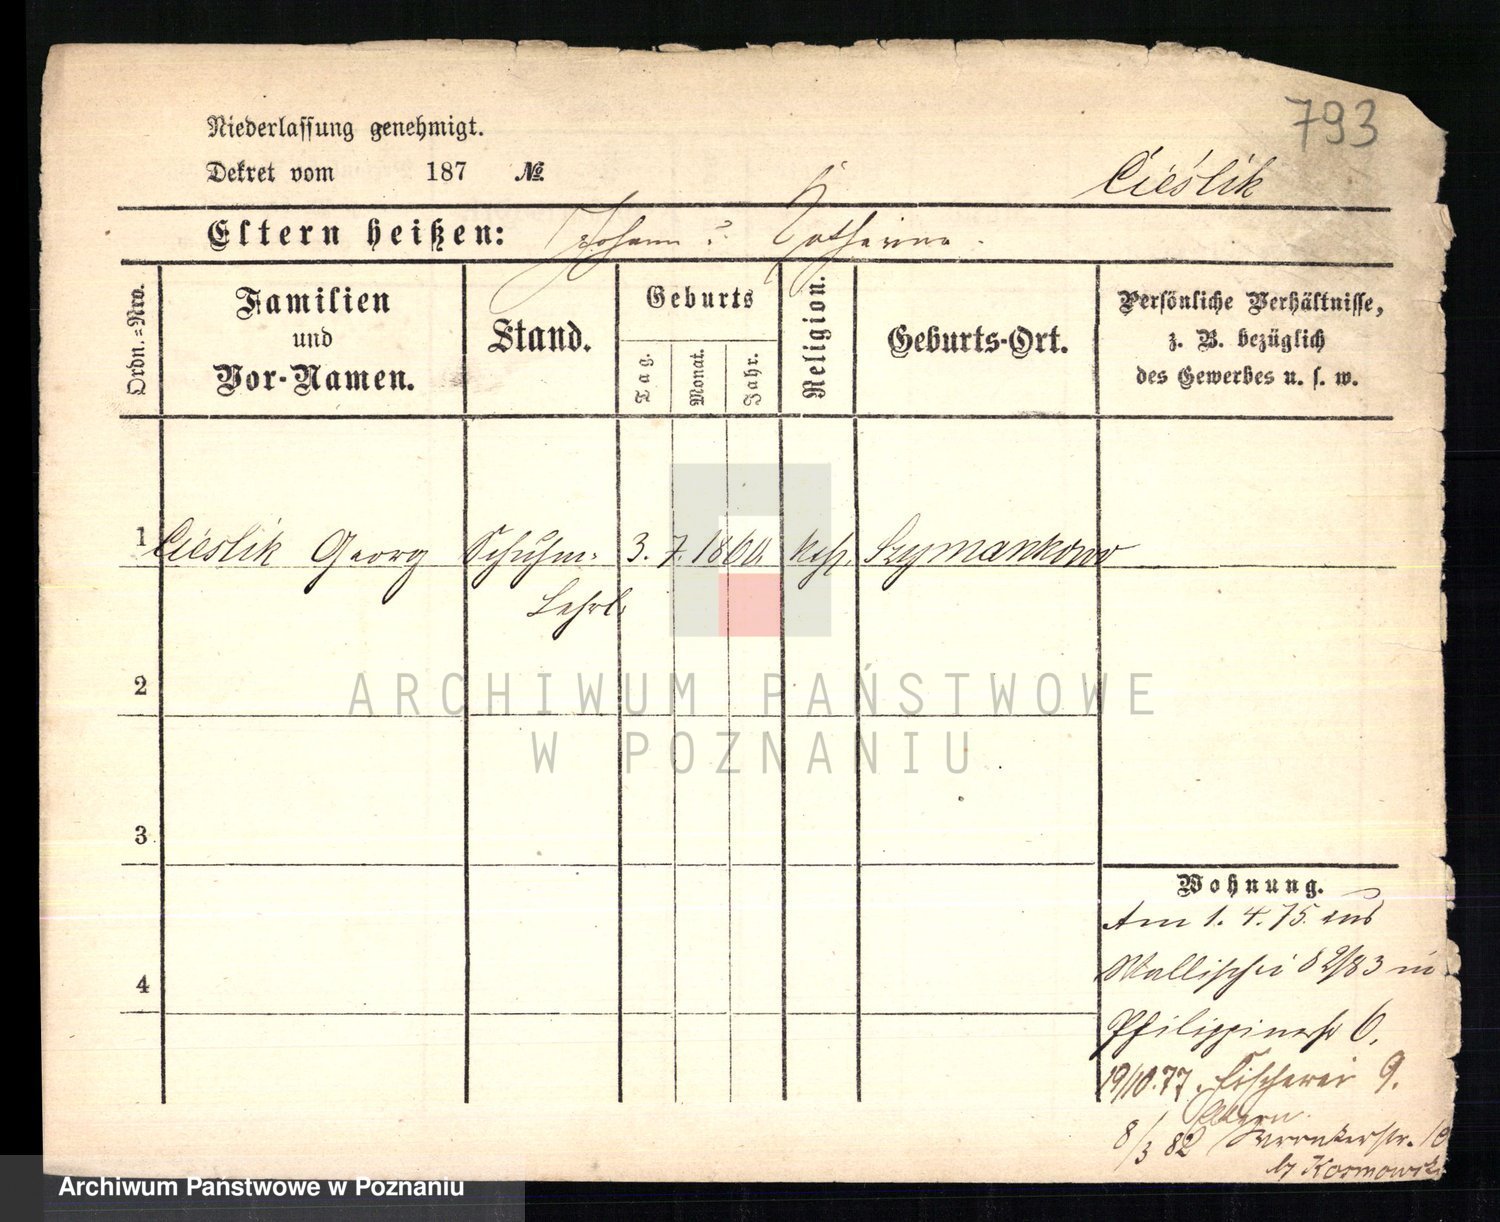 793
Niederlassung genehmigt.
Dekret vom 187 №
Cieślik
Eltern heißen: Johann u. Katharina.
Ordn.=Nro.
Familien
und
Vor-Namen.
Stand.
Geburts
Tag.
Monat.
Jahr.
Religion.
Geburts-Ort.
Persönliche Verhältnisse,
z. B. bezüglich
des Gewerbes u. s. w.
1 Cieslik Georg Schuhm: 3. 7. 1860. kth. Szymankowo
Lehrl.
2
3
4
Wohnung.
Am 1. 4. 75. aus
Wallischei 82/83 in
Philippinerstr 6.
19/10.77. Fischerei 9.
Eltern.
8/3 82 Wronkerstr.
ARCHIWUM PAŃSTWOWE
W POZNANIU
Archiwum Państwowe w Poznaniu